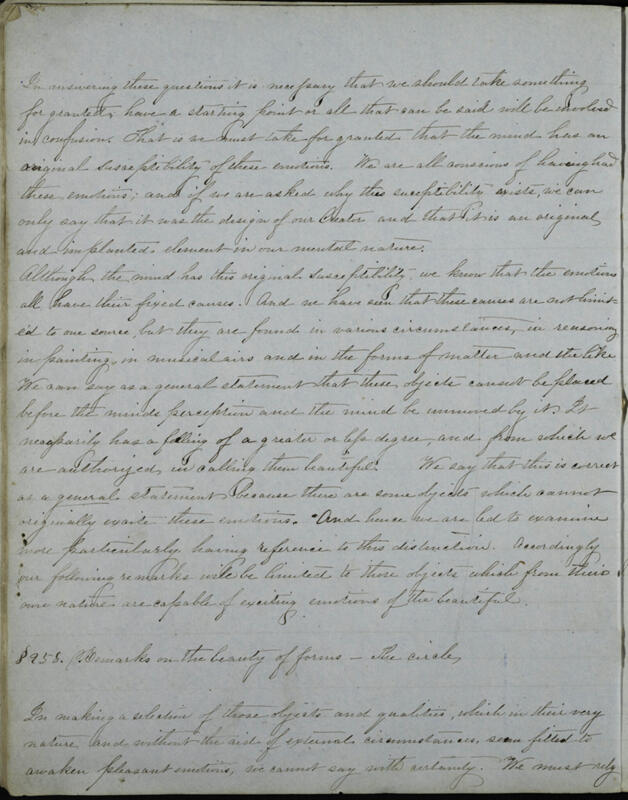 In answering these questions it is necessary that we should take something
for granted, have a starting point or all that can be said will be involved
in confusion. That is we must take for granted that the mind has an
original susceptibility of these emotions. We are all conscious of having had
these emotions; and if we are asked why this suceptibility exists, we can
only say that it was the design of our Creator and that it is an original
and implanted element in our mental nature.
Although the mind has this original susceptibility we know that the emotions
all have their fixed causes. And we have seen that these causes are not limit-
ed to one source, but they are found in various circumstances, in reasoning
in painting, on musical airs and in the forms of matter and the like
We can say as a general statement that these objects cannot be placed
before the minds perception and the mind be unmoved by it. It
necessarily has a feeling of a greater or less degree, and from which we
are authorized in calling them beautiful. We say that this is correct
as a general statement because there are some objects which cannot
originally excite these emotions. And hence we are led to examine
more particularly having reference to this distinction. Accordingly
our following remarks will be limited to those objects which from their
own nature are capable of exciting emotions of the beautiful.
§ 258. Remarks on the beauty of forms — The circle
In making a selection of those objects and qualities, which in their very
nature, and without the aid of external circumstances, seem fitted to
awaken pleasant emotions, we cannot say with certainty. We must rely